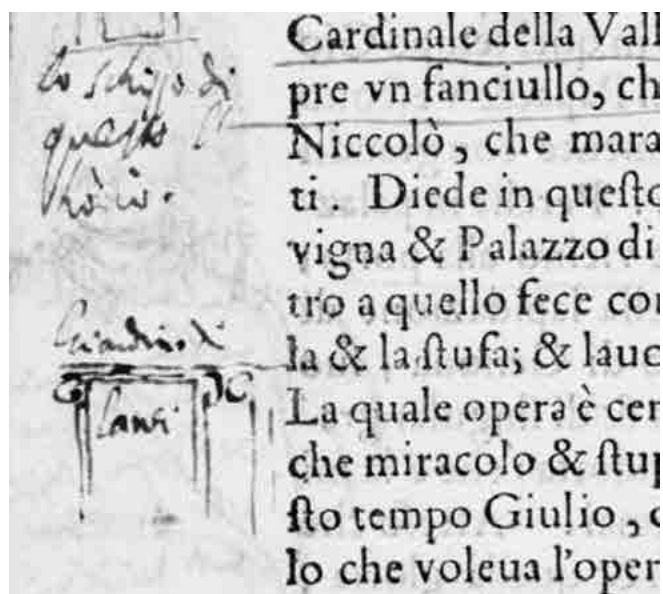 lo schizo di
questo
hò io.
Giardino di
Cardinale della Vall
pre vn fanciullo, ch
Niccolò, che mara
ti. Diede in queſto
vigna & Palazzo di
tro a quello fece co
la & la ſtufa; & lauc
La quale opera è cer
che miracolo & ſtup
ſto tempo Giulio, c
lo che voleua l'oper